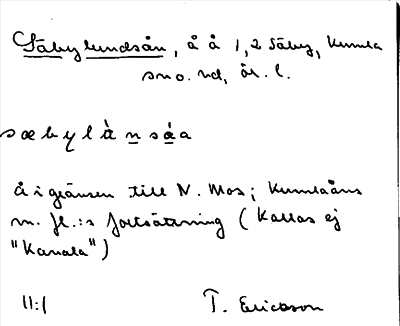 Säbylundsån, å å 1,2 Säby, Kumla
sno. nd, ör. l.
sæbylàn̲sá̲a
å i gränsen till N. Mos; Kumlaåns
m. fl.:s fortsättning (Kallas ej
"Kanala")
11:1 T. Ericsson